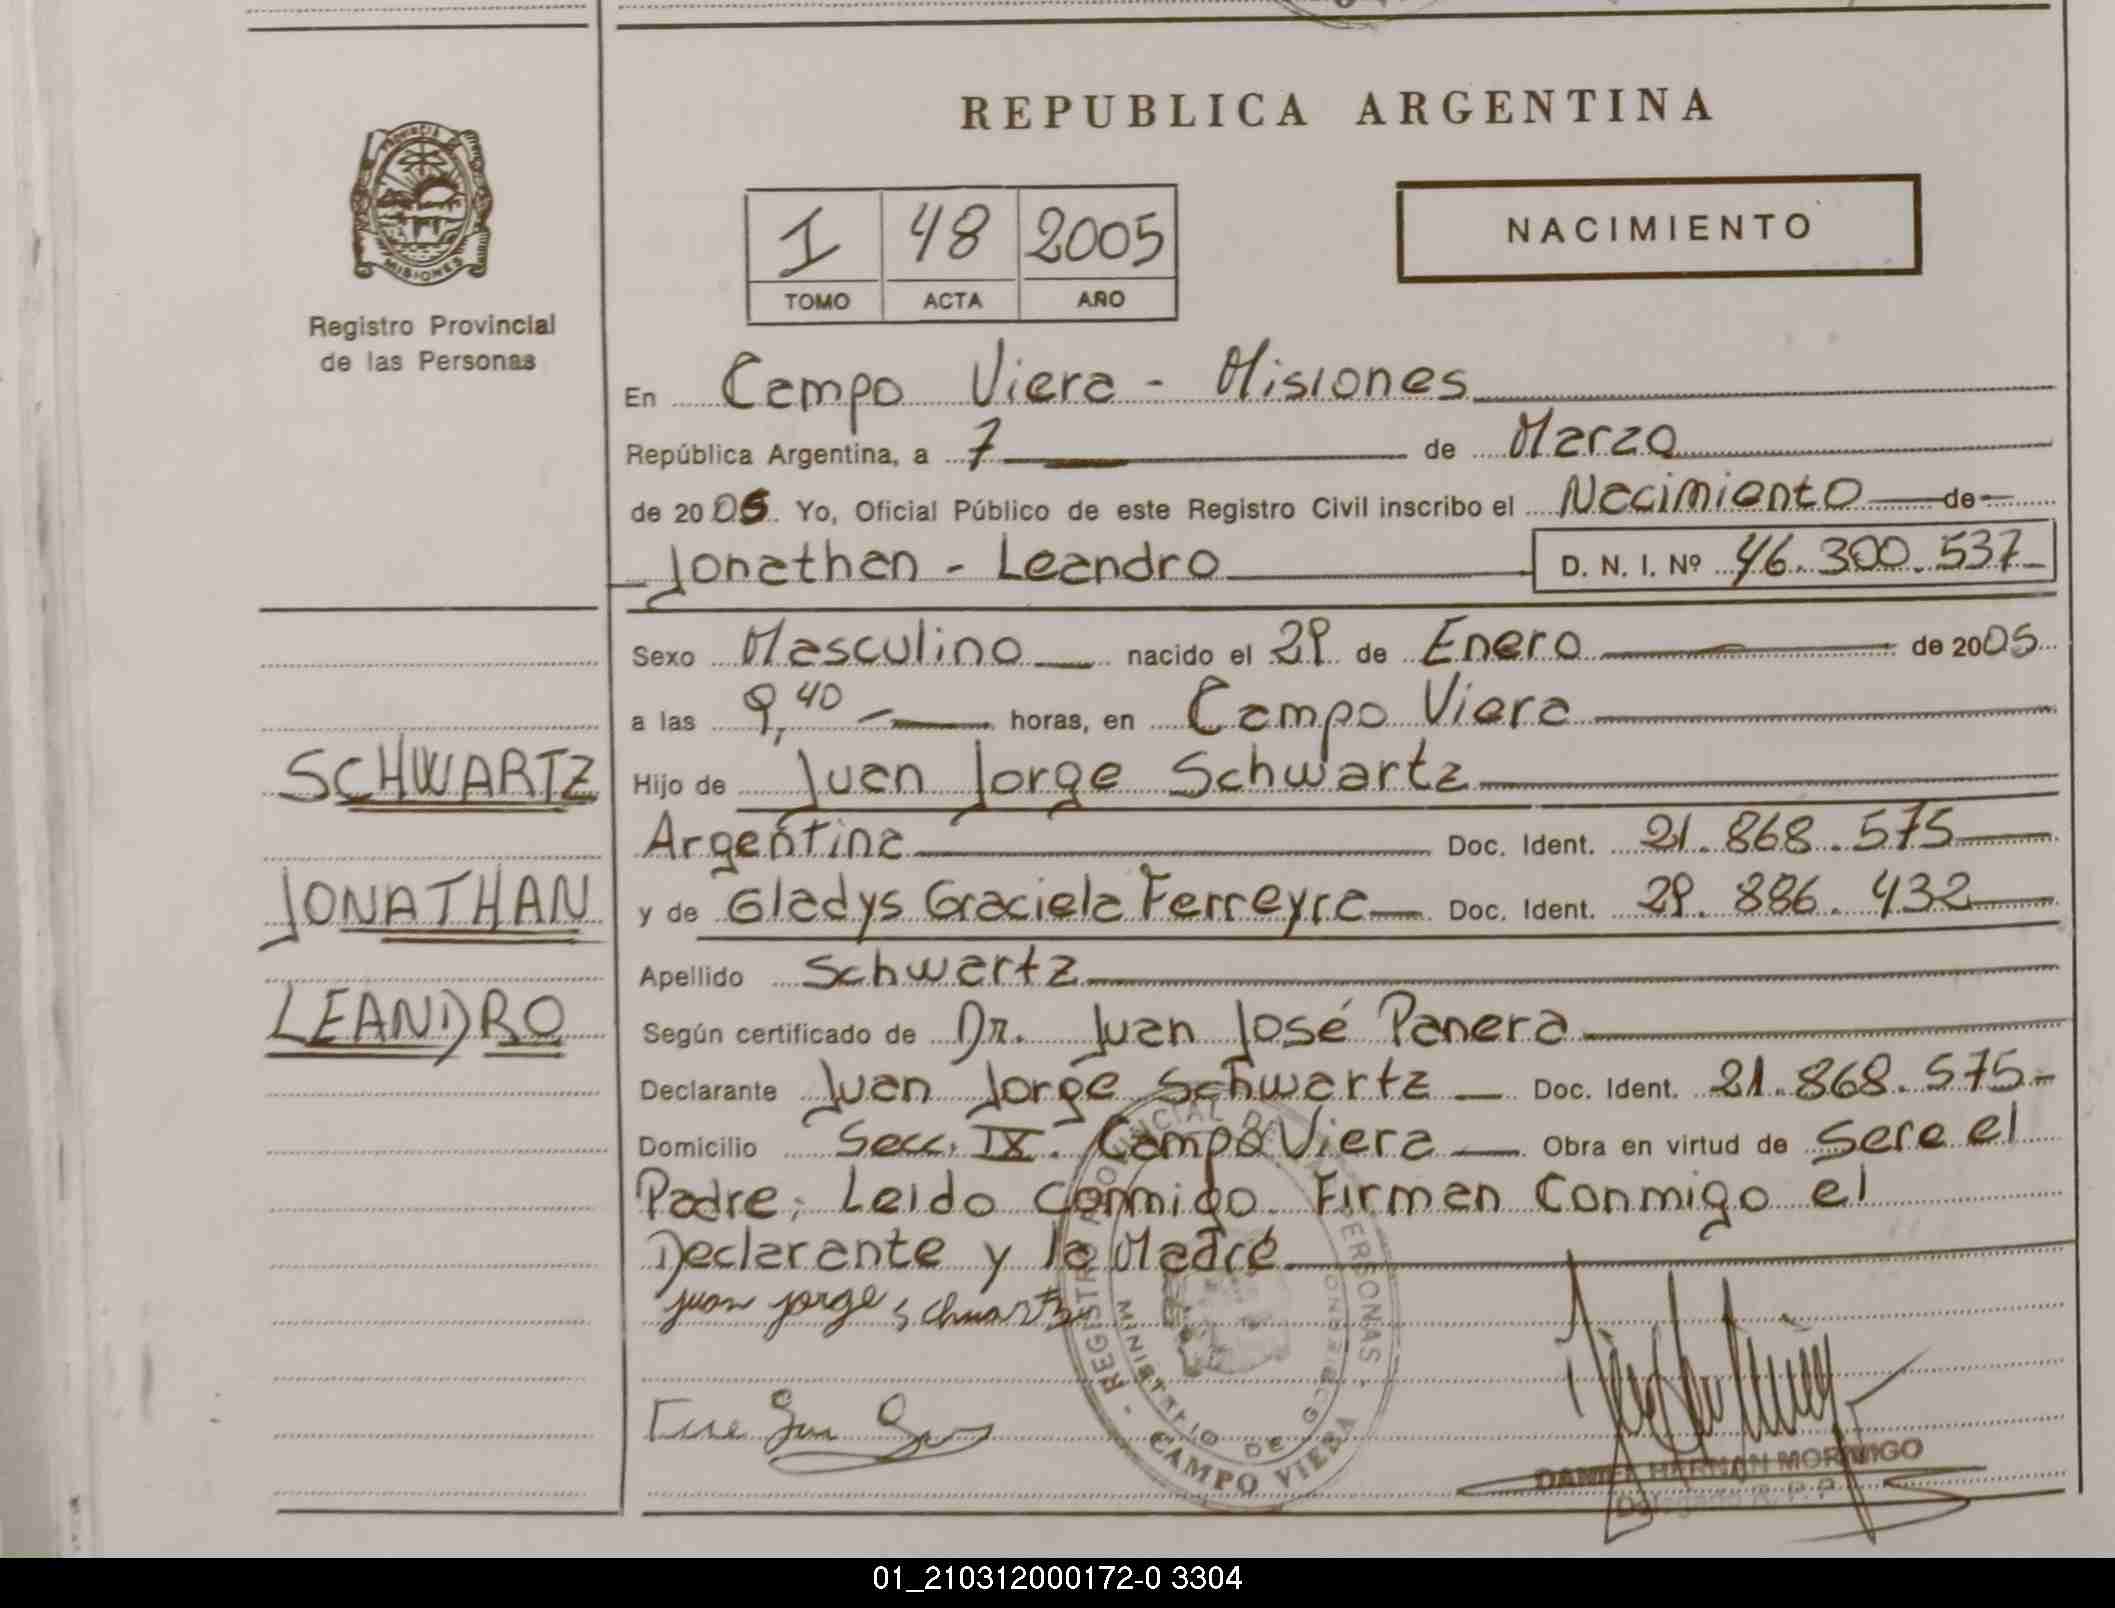 REPUBLICA ARGENTINA
PROVINCIA
MISIONES
Registro Provincial
de las Personas
I 48 2005
TOMO ACTA AÑO
NACIMIENTO
En Campo Viera - Misiones
República Argentina, a 7 de Marzo
de 2005 Yo, Oficial Público de este Registro Civil inscribo el Nacimiento de
Jonathan - Leandro D. N. I. Nº 46.300.537
Sexo Masculino nacido el 29 de Enero de 2005
a las 9,40 horas, en Campo Viera
SCHWARTZ
Hijo de Juan Jorge Schwartz
Argentina Doc. Ident. 21.868.575
JONATHAN
y de Gladys Graciela Ferreyra Doc. Ident. 29.886.432
Apellido Schwartz
LEANDRO
Según certificado de Dr. Juan José Panera
Declarante Juan Jorge Schwartz Doc. Ident. 21.868.575
Domicilio Secc. IX. Campo Viera Obra en virtud de Sere el
Padre; Leido Conmigo. Firman Conmigo el
Declarante y la Madre
juan jorge schwartz
REGISTRO PROVINCIAL DE LAS PERSONAS
MINISTERIO DE GOBIERNO
CAMPO VIERA
DANIEL HERNAN MORINIGO
Delegado R. P. P.
01_210312000172-0 3304